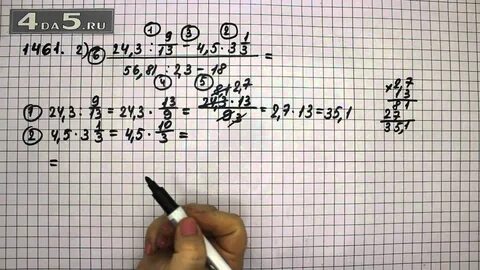 4DA5.RU
① 9 ③ ② 1
1461. 2) ⑥ 24,3 : 13 − 4,5 · 3 3
56,81 : 2,3 − 18 =
④ ⑤
① 24,3 : 9/13 = 24,3 · 13/9 = 24,3 · 13 / 9 = 2,7 · 13 = 35,1
② 4,5 · 3 1/3 = 4,5 · 10/3 =
=
× 2,7
13
81
27
35,1